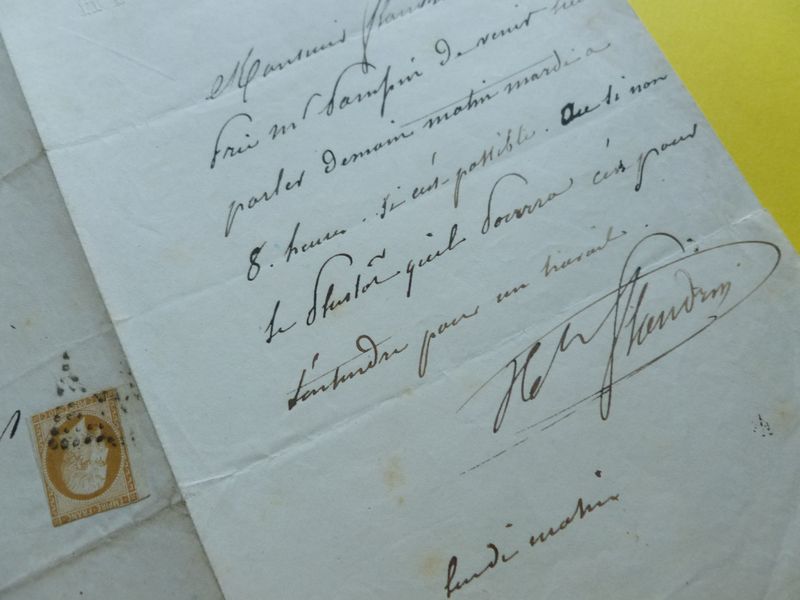 Monsieur Flandrin
Prie mr Dampin de venir lui
parler demain matin mardi a
8. heures. si c'est possible. Ou si non
le Plustôt qu'il Pourra c'est pour
s'entendre pour un travail.
Hte Flandrin
lundi matin
EMPIRE FRANC